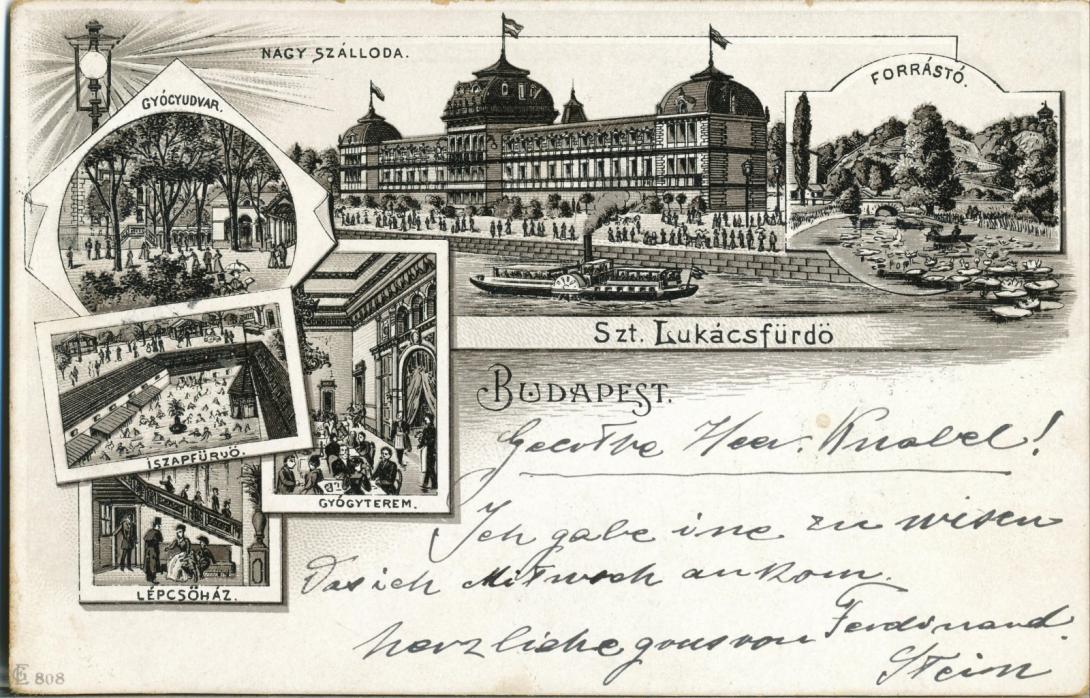 NAGY SZÁLLODA.
FORRÁSTÓ.
GYÓGYUDVAR.
Szt. Lukácsfürdö
BUDAPEST.
ISZAPFÜRDŐ.
GYÓGYTEREM.
LÉPCSŐHÁZ.
Geerthe Heer. Knabel!
Ich gabe ine zu wisen
Das ich Mitwoch ankom.
herzliche grus von Ferdinand.
Stein
808